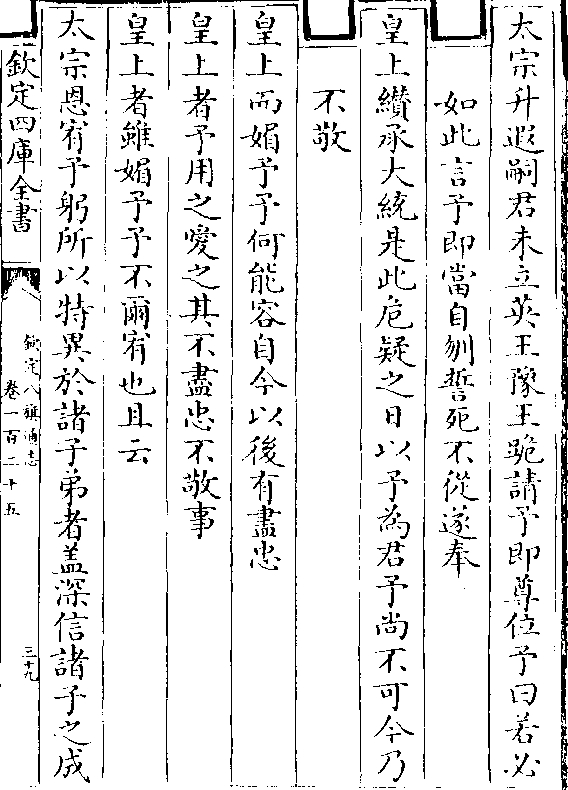 太宗升遐嗣君未立英王豫王跪請予即尊位予曰若必
如此言予即當自刎誓死不從遂奉
皇上纘承大統是此危疑之日以予為君予尚不可今乃
不敬
皇上而媚予予何能容自今以後有盡忠
皇上者予用之愛之其不盡忠不敬事
皇上者雖媚予予不爾宥也且云
太宗恩宥予躬所以特異於諸子弟者盖深信諸子之成
欽定四庫全書
欽定八旗通志
卷一百二十五
三十九